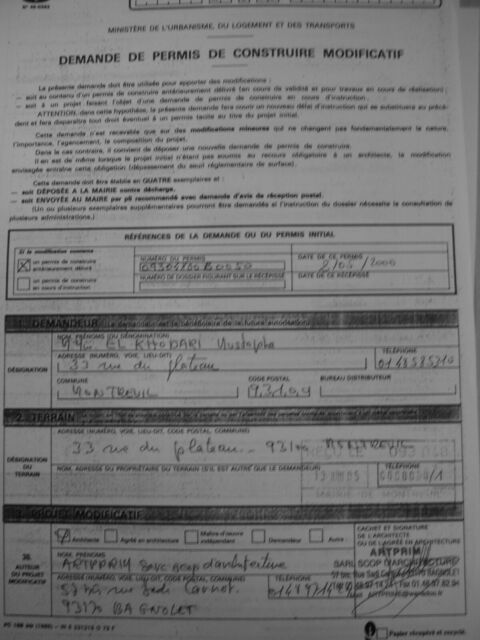 MINISTÈRE DE L'URBANISME, DU LOGEMENT ET DES TRANSPORTS
DEMANDE DE PERMIS DE CONSTRUIRE MODIFICATIF
La présente demande doit être utilisée pour apporter des modifications :
— soit au contenu d'un permis de construire antérieurement délivré (en cours de validité et pour travaux en cours de réalisation) ;
— soit à un projet faisant l'objet d'une demande de permis de construire en cours d'instruction.
ATTENTION, dans cette hypothèse, la présente demande fera courir un nouveau délai d'instruction qui se substituera au précé-
dent et fera disparaître tout droit éventuel à un permis tacite au titre du projet initial.
Cette demande n'est recevable que sur des modifications mineures qui ne changent pas fondamentalement la nature,
l'importance, l'agencement, la composition du projet.
Dans le cas contraire, il convient de déposer une nouvelle demande de permis de construire.
Il en est de même lorsque le projet initial n'étant pas soumis au recours obligatoire à un architecte, la modification
envisagée entraîne cette obligation (dépassement du seuil réglementaire de surface).
Cette demande doit être établie en QUATRE exemplaires et :
— soit DÉPOSÉE A LA MAIRIE contre décharge,
— soit ENVOYÉE AU MAIRE par pli recommandé avec demande d'avis de réception postal.
(Un ou plusieurs exemplaires supplémentaires pourront être demandés si l'instruction du dossier nécessite la consultation de
plusieurs administrations.)
RÉFÉRENCES DE LA DEMANDE OU DU PERMIS INITIAL
Si la modification concerne
un permis de construire antérieurement délivré
NUMÉRO DU PERMIS
DATE DE CE PERMIS
2/05/2000
un permis de construire en cours d'instruction
NUMÉRO DE DOSSIER FIGURANT SUR LE RÉCÉPISSÉ
DATE DE CE RÉCÉPISSÉ
1. DEMANDEUR Le demandeur est le bénéficiaire de la future autorisation
NOM, PRÉNOMS (OU DÉNOMINATION)
EL KHODARI Mustapha
DÉSIGNATION
ADRESSE (NUMÉRO, VOIE, LIEU-DIT)
TÉLÉPHONE
33 rue du plateau
0148585210
COMMUNE
CODE POSTAL
BUREAU DISTRIBUTEUR
MONTREUIL
93100
2. TERRAIN
ADRESSE (NUMÉRO, VOIE, LIEU-DIT, CODE POSTAL, COMMUNE)
33 rue du plateau - 93100 MONTREUIL
DÉSIGNATION DU TERRAIN
NOM, ADRESSE DU PROPRIÉTAIRE DU TERRAIN (S'IL EST AUTRE QUE LE DEMANDEUR)
TÉLÉPHONE
MAIRIE DE MONTREUIL
3. PROJET MODIFICATIF
Architecte
Agréé en architecture
Maître d'œuvre indépendant
Demandeur
Autre :
CACHET ET SIGNATURE
DE L'ARCHITECTE
OU DE L'AGRÉÉ EN ARCHITECTURE
ARTPRIM
SARL SCOP D'ARCHITECTURE
AUTEUR DU PROJET MODIFICATIF
NOM, PRÉNOMS
ARTPRIM SARL SCOP d'architecture
ADRESSE (NUMÉRO, VOIE, LIEU-DIT)
57 bis rue Sadi Carnot
93170 BAGNOLET
Papier récupéré et recyclé